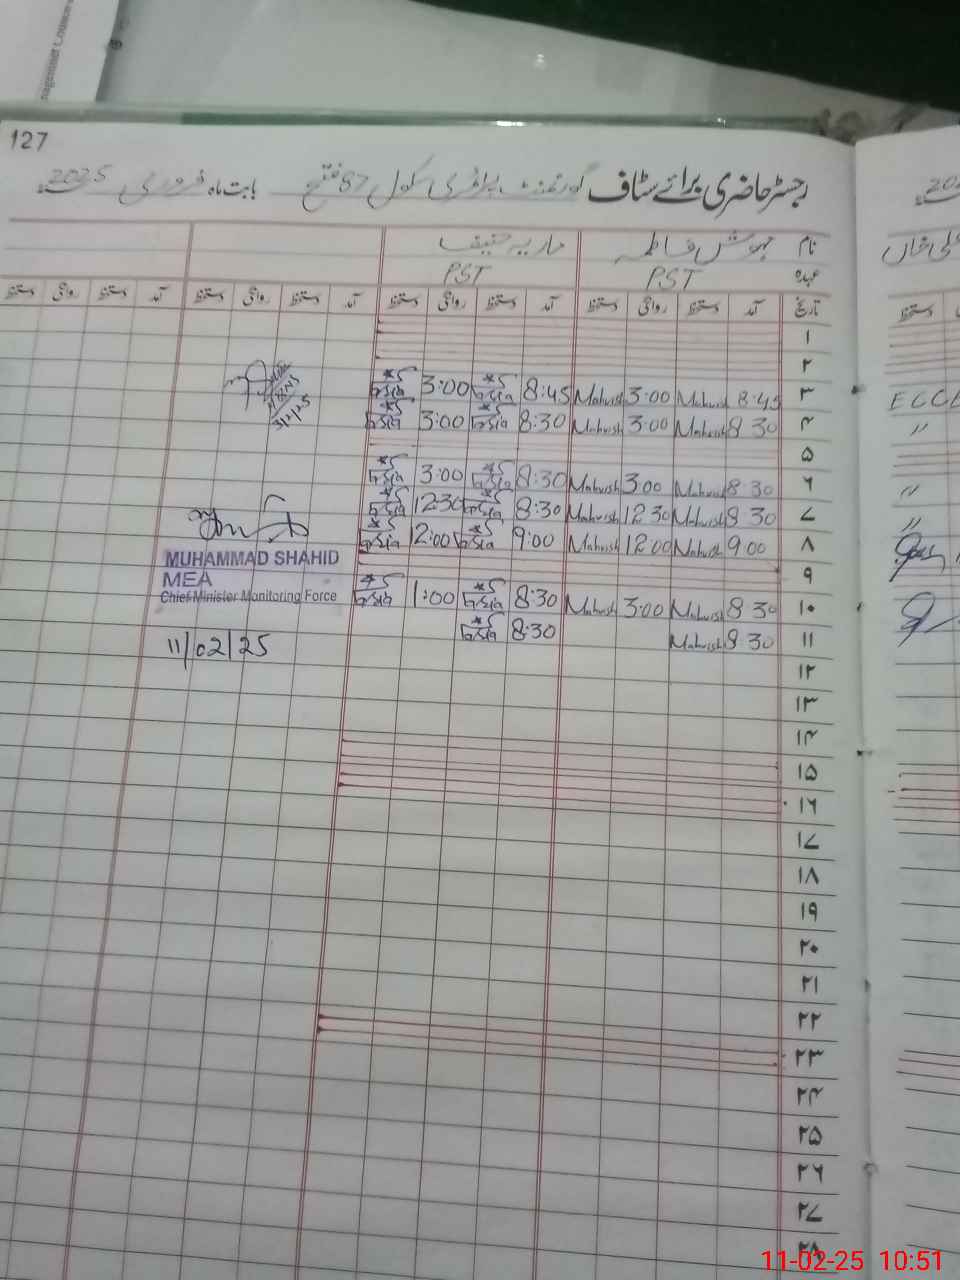 nagement Counc
127
رجسٹر حاضری برائے سٹاف گورنمنٹ پرائمری سکول 87 فتح بابت ماہ فروری 2025
نام مہوش فاطمہ ماریہ حنیف
عہدہ PST PST
تاریخ آمد دستخط روانگی دستخط آمد دستخط روانگی دستخط آمد دستخط روانگی دستخط آمد دستخط روانگی دستخط
۱
۲
۳ 8:45 Mahwish 3:00 Mahwish 8:45 3:00
۴ 8:30 Mahwish 3:00 Mahwish 8:30 3:00
۵
۶ 8:30 Mahwish 3:00 Mahwish 8:30 3:00
۷ 8:30 Mahwish 12:30 Mahwish 8:30 12:30
۸ 9:00 Mahwish 12:00 Mahwish 9:00 2:00
۹
۱۰ 8:30 Mahwish 3:00 Mahwish 8:30 1:00
۱۱ 8:30 Mahwish 8:30
۱۲
۱۳
۱۴
۱۵
۱۶
۱۷
۱۸
۱۹
۲۰
۲۱
۲۲
۲۳
۲۴
۲۵
۲۶
۲۷
۲۸
MUHAMMAD SHAHID
MEA
Chief Minister Monitoring Force
11/02/25
علی خاں
دستخط
ECCE
"
"
"
11-02-25 10:51